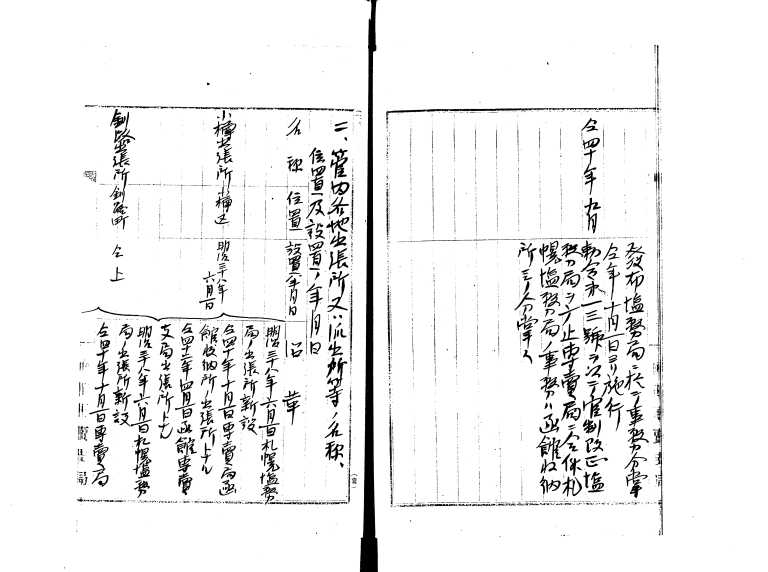 仝四十年九月
発布塩務局ニ於テ事務分掌
仝年十月一日ヨリ施行
勅令第一三號ヲ以テ官制改正塩
務局ヲ廃止専賣局ニ合併札
幌塩務局ノ事務ハ函館収納
所ニ分掌ス
二、管内各地出張所又ハ派出所等ノ名称、
位置及設置ノ年月日
名称 位置 設置年月日 沿革
小樽出張所 小樽区 明治三十八年
六月一日
明治三十八年六月一日札幌塩務
局ノ出張所新設
仝四十年十月一日専賣局函
館収納所ノ出張所トナル
仝四十二年四月一日函館専賣
支局出張所トナル
釧路出張所 釧路町 仝上
明治三十八年六月一日札幌塩務
局ノ出張所新設
仝四十年十月一日専賣局